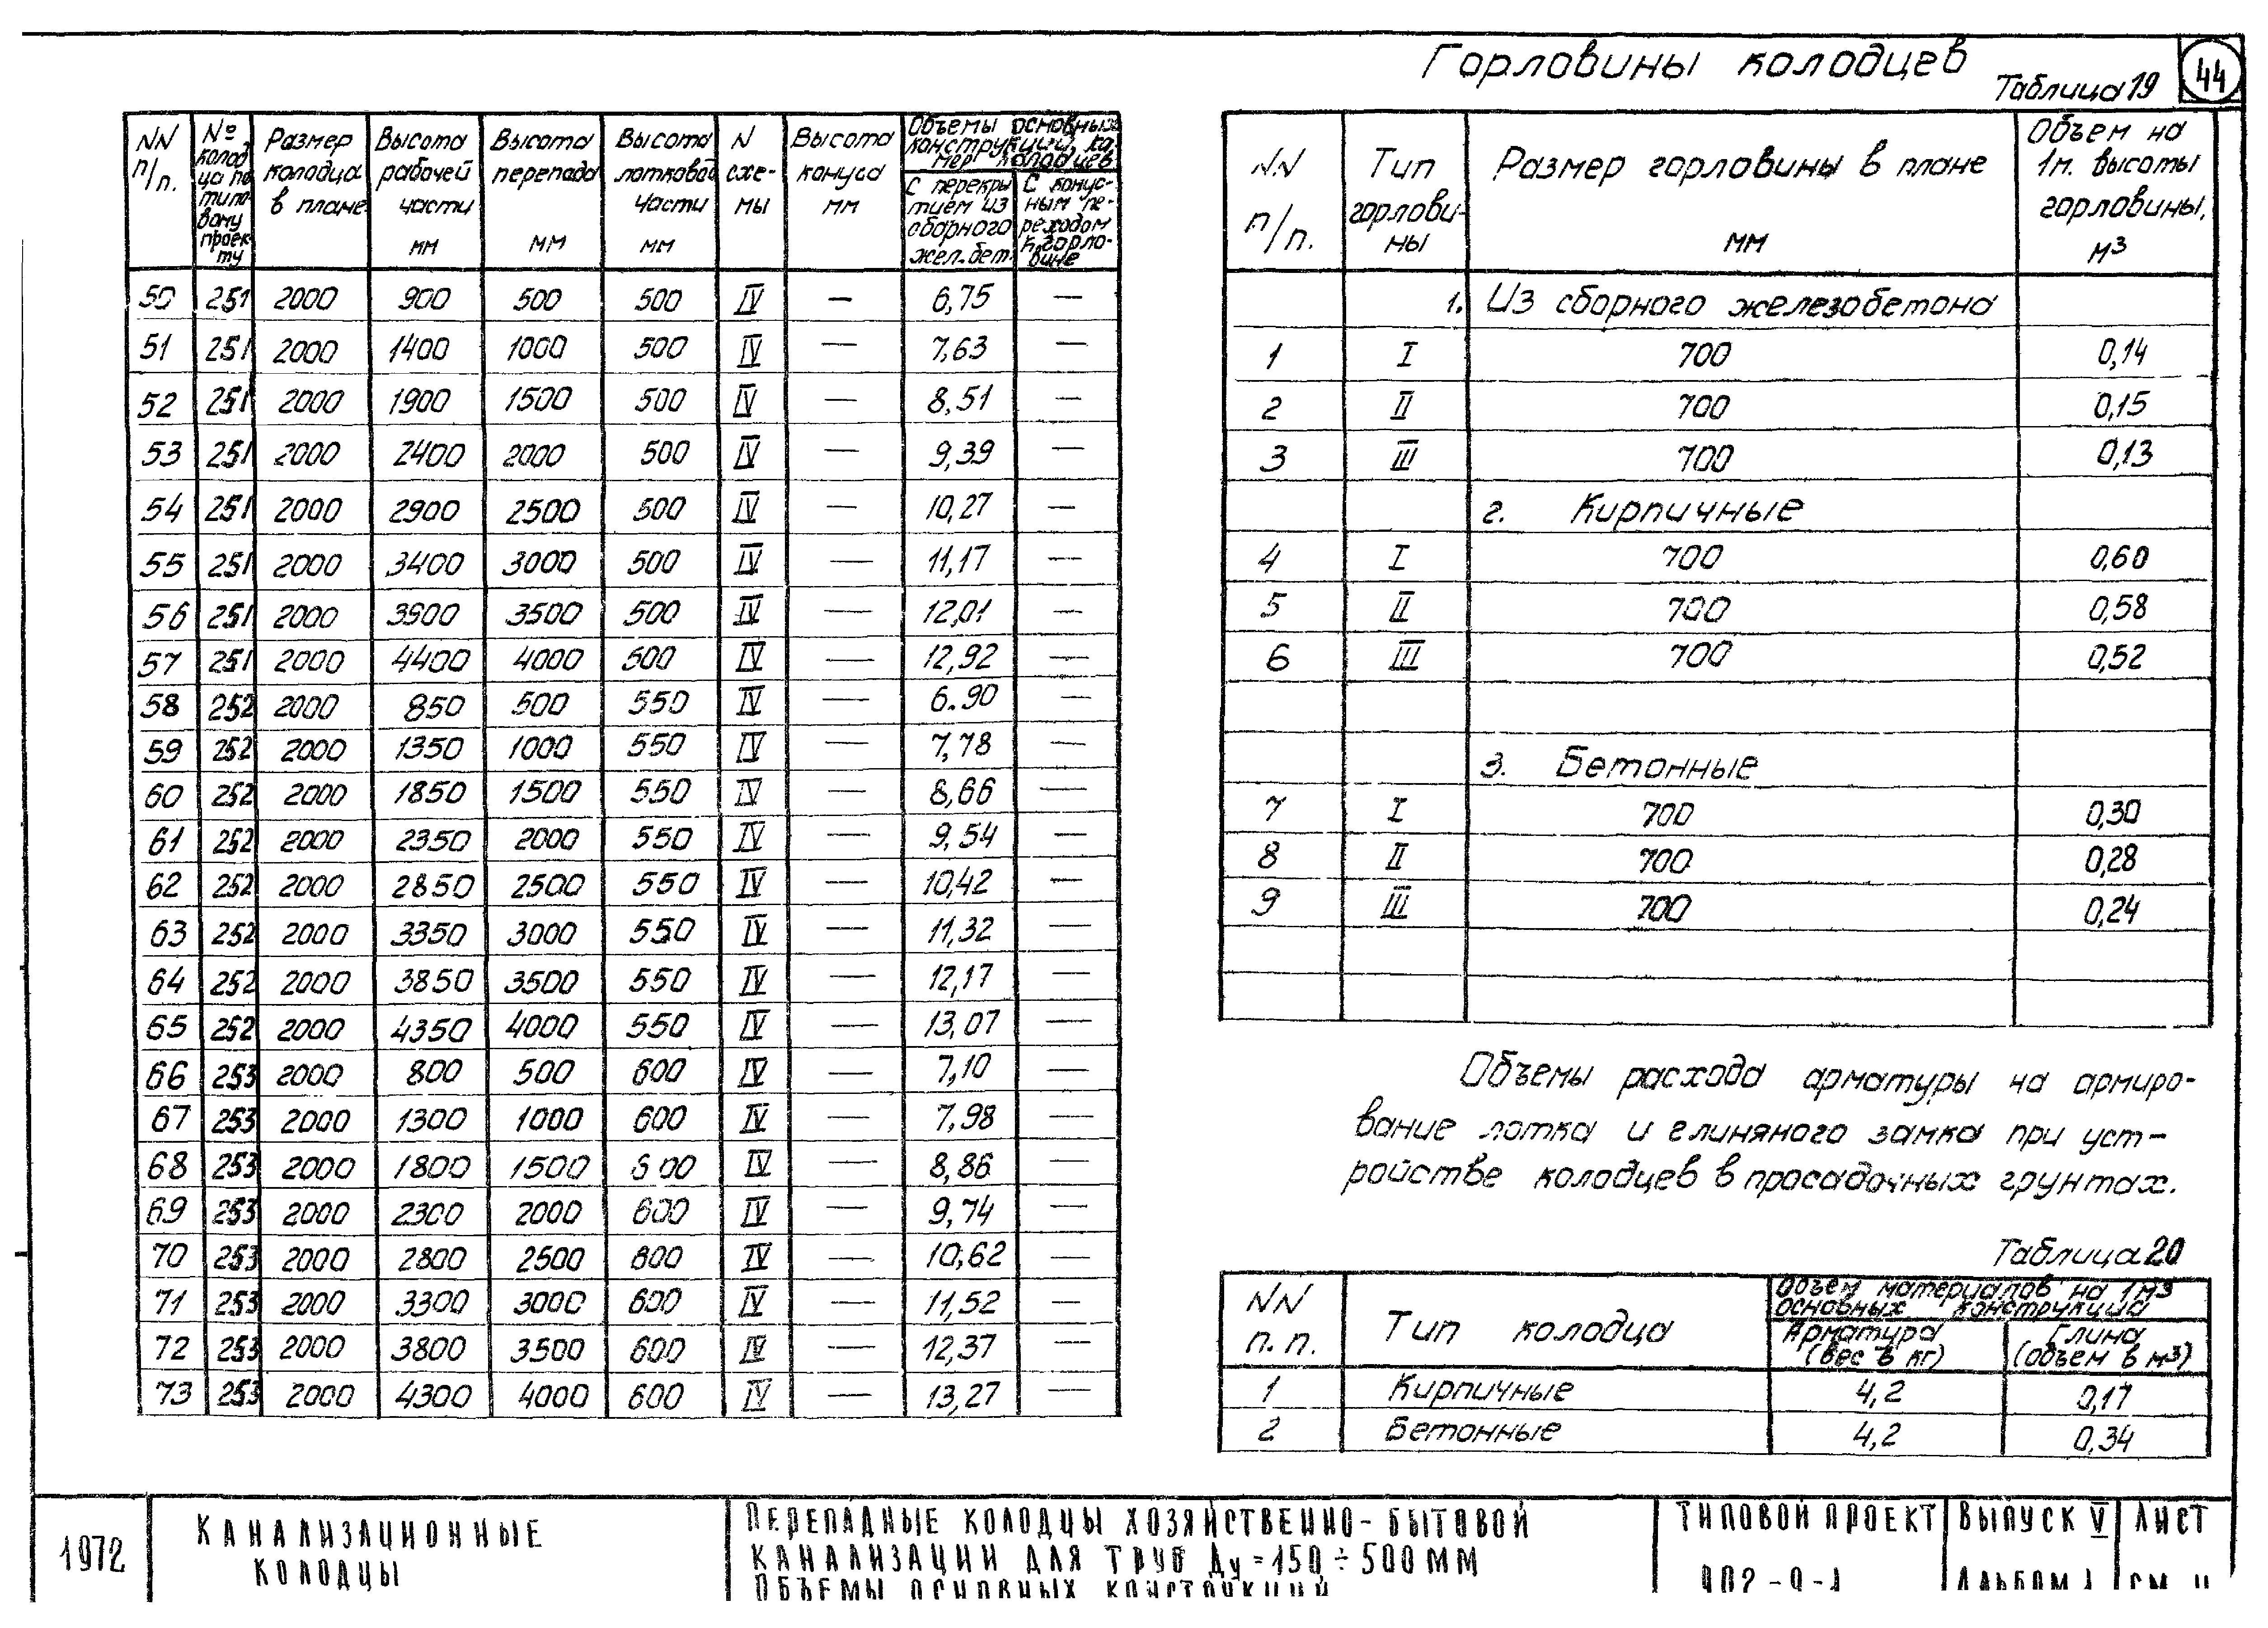 Горловины колодцев
44
Таблица 19
NN п/п. | № колодца по типовому проекту | Размер колодца в плане | Высота рабочей части мм | Высота перепада мм | Высота лотковой части мм | N схемы | Высота конуса мм | Объемы основных конструкций, камер колодцев
С перекрытием из сборного жел.бет. | С конусным переходом к горловине
50 251 2000 900 500 500 IV — 6,75 —
51 251 2000 1400 1000 500 IV — 7,63 —
52 251 2000 1900 1500 500 IV — 8,51 —
53 251 2000 2400 2000 500 IV — 9,39 —
54 251 2000 2900 2500 500 IV — 10,27 —
55 251 2000 3400 3000 500 IV — 11,17 —
56 251 2000 3900 3500 500 IV — 12,01 —
57 251 2000 4400 4000 500 IV — 12,92 —
58 252 2000 850 500 550 IV — 6.90 —
59 252 2000 1350 1000 550 IV — 7,78 —
60 252 2000 1850 1500 550 IV — 8,66 —
61 252 2000 2350 2000 550 IV — 9,54 —
62 252 2000 2850 2500 550 IV — 10,42 —
63 252 2000 3350 3000 550 IV — 11,32 —
64 252 2000 3850 3500 550 IV — 12,17 —
65 252 2000 4350 4000 550 IV — 13,07 —
66 253 2000 800 500 600 IV — 7,10 —
67 253 2000 1300 1000 600 IV — 7,98 —
68 253 2000 1800 1500 600 IV — 8,86 —
69 253 2000 2300 2000 600 IV — 9,74 —
70 253 2000 2800 2500 600 IV — 10,62 —
71 253 2000 3300 3000 600 IV — 11,52 —
72 253 2000 3800 3500 600 IV — 12,37 —
73 253 2000 4300 4000 600 IV — 13,27 —
NN п/п. | Тип горловины | Размер горловины в плане мм | Объем на 1м. высоты горловины, м3
1. Из сборного железобетона
1 I 700 0,14
2 II 700 0,15
3 III 700 0,13
2. Кирпичные
4 I 700 0,60
5 II 700 0,58
6 III 700 0,52
3. Бетонные
7 I 700 0,30
8 II 700 0,28
9 III 700 0,24
Объемы расхода арматуры на армиро-
вание лотка и глиняного замка при уст-
ройстве колодцев в просадочных грунтах.
Таблица 20
NN п.п. | Тип колодца | Объем материалов на 1м3 основных конструкций
Арматура (вес в кг) | Глина (объем в м3)
1 Кирпичные 4,2 0,17
2 Бетонные 4,2 0,34
1972
КАНАЛИЗАЦИОННЫЕ
КОЛОДЦЫ
ПЕРЕПАДНЫЕ КОЛОДЦЫ ХОЗЯЙСТВЕННО-БЫТОВОЙ
КАНАЛИЗАЦИИ ДЛЯ ТРУБ Ду=150÷500 ММ
ОБЪЕМЫ ОСНОВНЫХ КОНСТРУКЦИЙ
ТИПОВОЙ ПРОЕКТ
902-9-1
ВЫПУСК V
АЛЬБОМ I
ЛИСТ